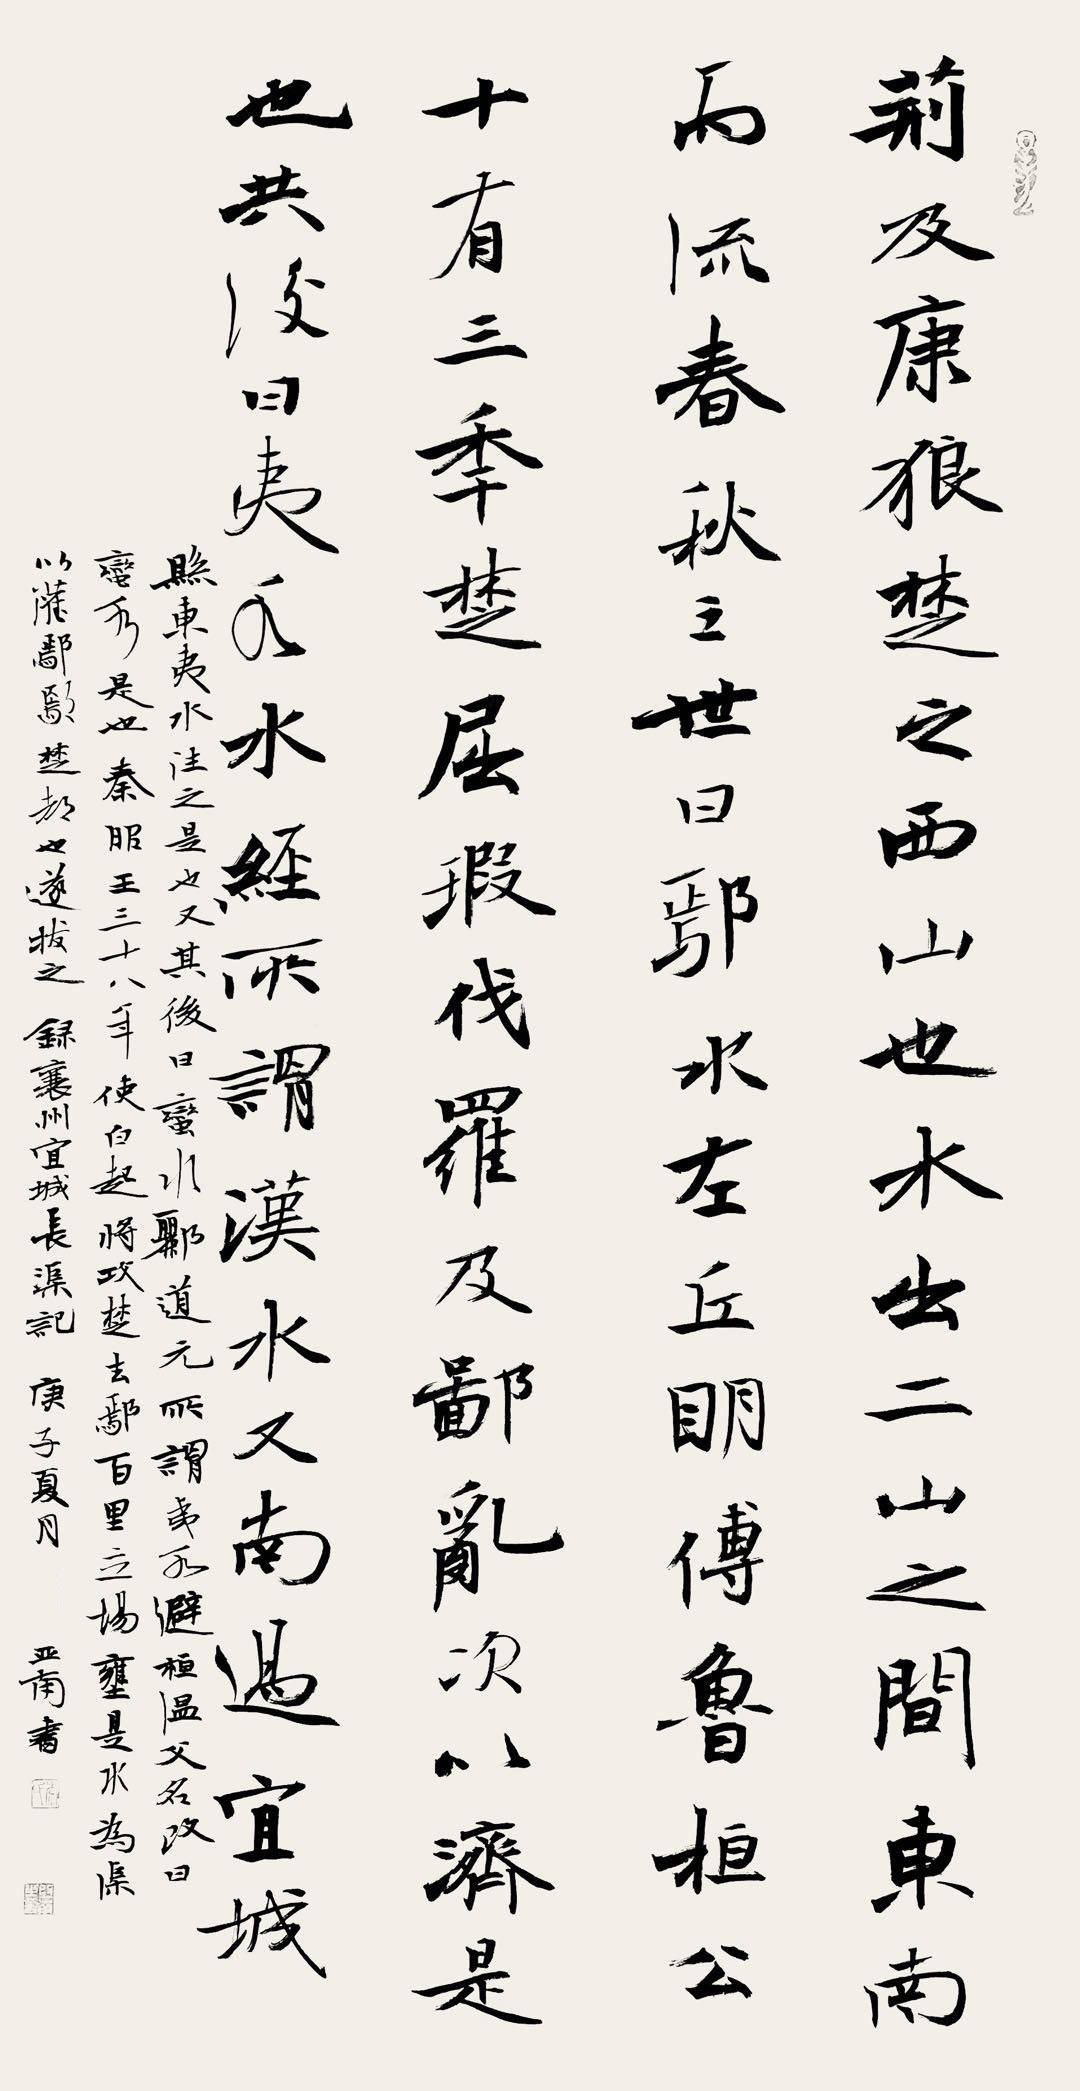 荊及康狼楚之西山也水出二山之間東南
而流春秋之世曰鄢水左丘明傅魯桓公
十有三季楚屈瑕伐羅及鄢亂次以濟是
也其後曰夷水水經所謂漢水又南過宜城
縣東夷水注之是也又其後曰蠻水酈道元所謂夷水避桓温父名改曰
蠻水是也秦昭王三十八年使白起將攻楚去鄢百里立堨壅是水為渠
以灌鄢鄢楚都也遂拔之 録襄州宜城長渠記 庚子夏月 亚南書